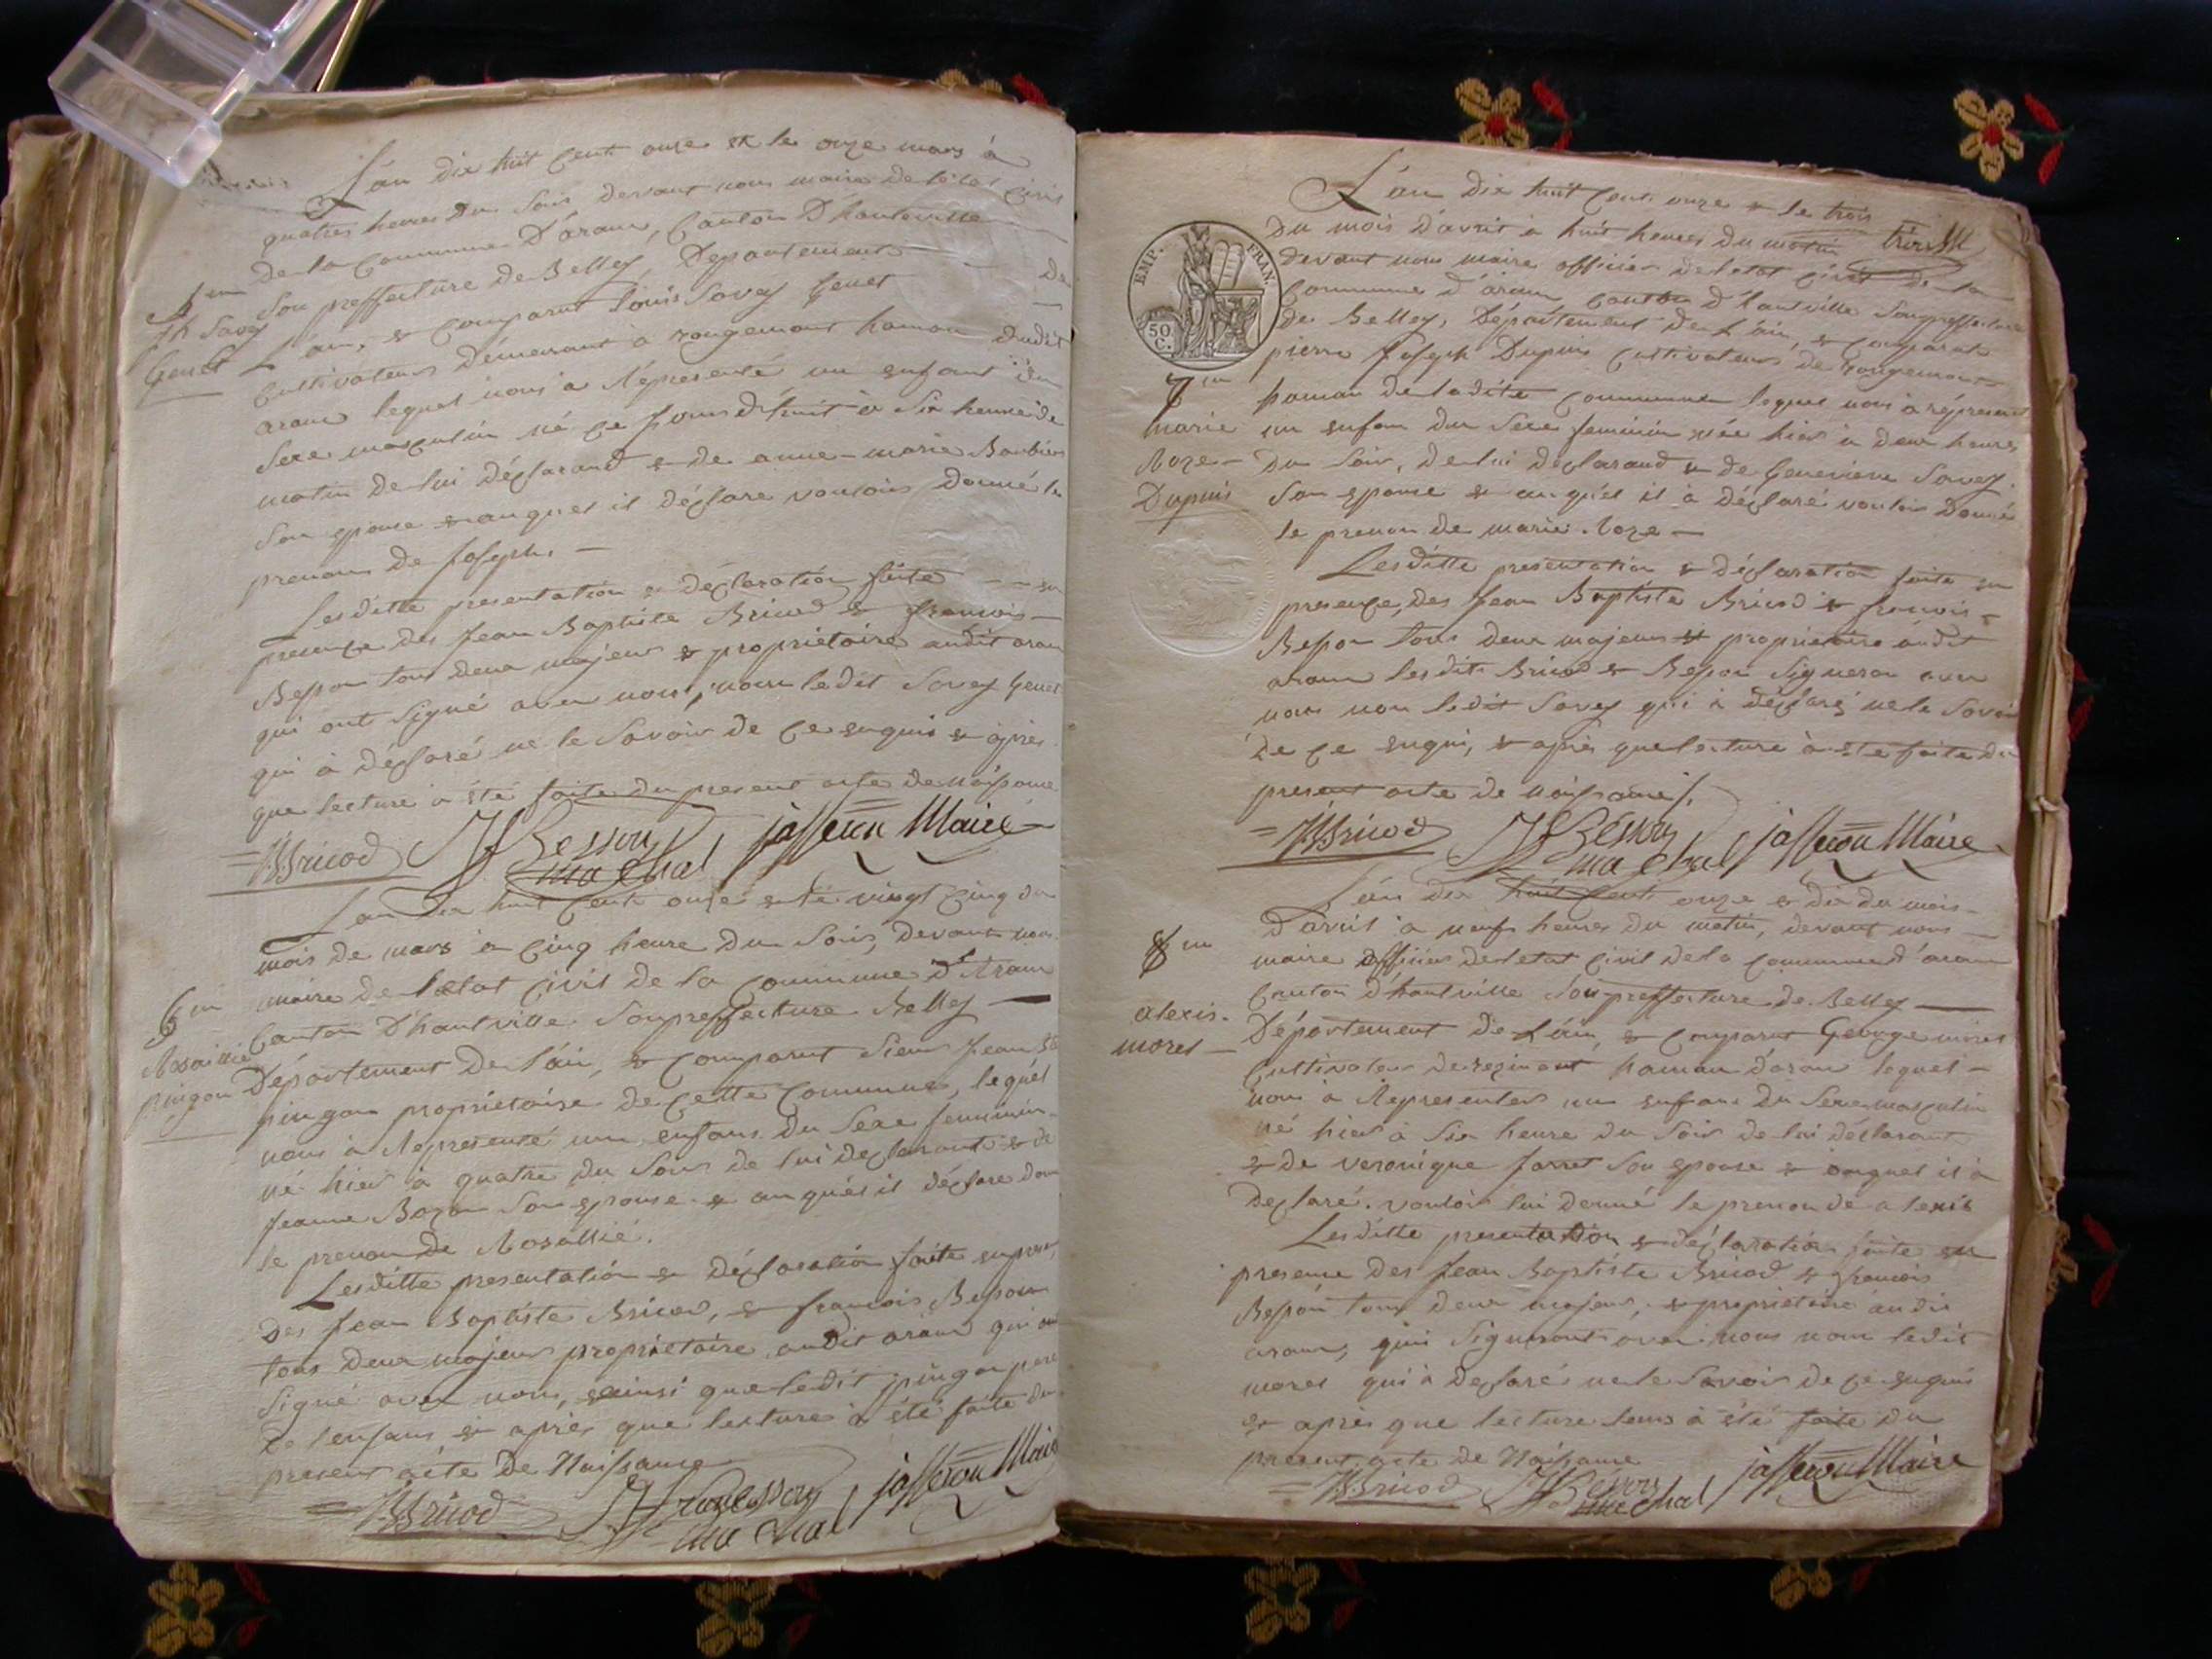 L'an dix huit cent onze & le onze mars à
quatres heures du soir, devant nous maire de l'état civil
de la commune d'aranc, canton d'hauteville
sou preffecture de Belley, Departement de
5me
Jh Savey
Genet
L'ain, & comparut Louis Savey Genet
cultivateur démeurant à rougemont hamau dudit
aranc lequel nous a répresenté un enfant du
sexe masculin né ce jourd'huit à six heure de
matin de lui déclarand & de anne-marie Barbier
son epouse & auquel il déclare vouloir donné le
prenom de Joseph. —
Lesditte presentation & déclaration faite en
presence des Jean Baptiste Bricod & francois
Besson tous deux majeur & propriétaire audit aranc
qui ont signé avec nous, non ledit Savey Genet
qui à déclaré ne le savoir de ce enquis & après
que lecture à été faite du present acte de naissance
= JBBricod JF Besson jasseron Maire
ma chal
L'an dix huit cent onze & le vingt cinq du
mois de mars à cinq heure du soir, devant nous
maire de l'etat civil de la commune d'Aranc
6me
Rosallié
pingon
canton d'hautville souprefecture Belley —
Département de l'ain, & comparut sieur Jean Bte
pingon proprietaire de cette commune, lequel
nous à représenté un enfans du sexe feminin
né hier à quatre du soir de lui declarant & de
Jeanne Bozon son epouse & auquel il déclare donné
le prenom de Rosallié.
Lesditte presentation & déclaration faite en presence
des Jean Baptiste Bricod, & francois Besson
tous deux majeur propriétaire audit aranc qui ont
signé avec nous, ainsi que ledit pingon pere
de l'enfans, & après que lecture à été faite du
present acte de Naissance
= JBBricod JF Besson jasseron Maire
ma chal
L'an dix huit cent onze & le trois
du mois d'avril à huit heures du matin
devant nous maire officier de l'etat civil de la
commune d'aranc canton d'hautville souspreffecture
EMP. FRAN.
50 C.
de Belley, Département de L'ain, & comparut
pierre Joseph Dupuis cultivateur de rougemont
7me
marie
Roze
Dupuis
hamau de ladite commune lequel nous à répresenté
un enfan du sexe feminin née hier à deux heures
du soir, de lui déclarand & de Genevieve Savey
son epouse & auquel il à déclaré vouloir donné
le prenom de marie Roze —
Lesditte presentation & déclaration faite en
presence, des Jean Baptiste Bricod & francois
Besson tous deux majeur & proprietaire audit
aranc lesdits Bricod & Besson signeron avec
nous non ledit Savey qui à déclaré ne le savoir
de ce enqui, & après que lecture à été faite du
present acte de naissance/.
= JBBricod JF Besson jasseron Maire
ma chal
L'an dix huit cent onze & dix du mois
d'avril à neuf heures du matin, devant nous
8me
alexis
morel
maire officier de l'etat civil de la commune d'aranc
canton d'hautville souprefecture de Belley
Département de L'ain, & comparut George morel
cultivateur de regimont hamau d'aranc lequel
nous à représenter un enfans du sexe masculin
né hier à six heure du soir de lui déclarant
& de veronique Jarret son epouse & auquel il à
declaré vouloir lui donné le prenom de alexis
Lesditte presentation & déclaration faite en
presence des Jean Baptiste Bricod & francois
Besson tous deux majeur, & proprietaire audit
aranc, qui signeront avec nous non ledit
morel qui à declaré ne le savoir de ce enquis
& après que lecture leurs à été faite du
present acte de Naissance
= JBBricod JF Besson jasseron Maire
ma chal